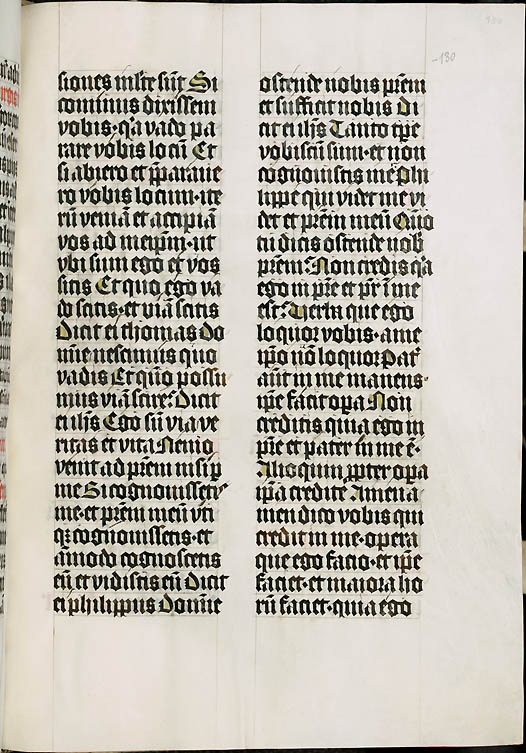 130
-130
siones m̄lte sūt Si
cominus dixissem
vobis · q̄a vado pa
rare vobis locū Et
si abiero et p̄parave
ro vobis locum · ite
rū veniā et accipiā
vos ad meip̄m · ut
vbi sum ego et vos
sitis Et quo ego va
do scitis · et viā scitis
Dicit ei thomas Do
mīe nescimus quo
vadis Et quō possu
mus viā scire? Dicit
ei ih̄s Ego sū via ve
ritas et vita Nemo
venit ad p̄rem nisi p
me Si cognovisseti
me · et p̄rem meū vti
qꝫ cognovissetis · et
āmodo cognoscetis
eū et vidistis eū Dicit
ei philippus Domīe
ostende nobis p̄rem
et sufficit nobis Di
cit ei ih̄s Tanto tp̄e
vobiscū sum · et non
cognovistis me Phi
lippe qui videt me vi
det et p̄rem meū Quō
tu dicis ostende nob̄
p̄rem? Non credis q̄a
ego in p̄re et p̄r ī me
est? Verba que ego
loquor vobis · a me
ip̄o nō loquor Pat̄
aūt in me manens ·
ip̄e facit op̄a Non
creditis quia ego in
p̄re et pater in me ē ·
Alioquin p̄pter op̄a
ip̄a credite Amen a
men dico vobis qui
credit in me · opera
que ego facio · et ip̄e
faciet · et maiora ho
rū faciet · quia ego